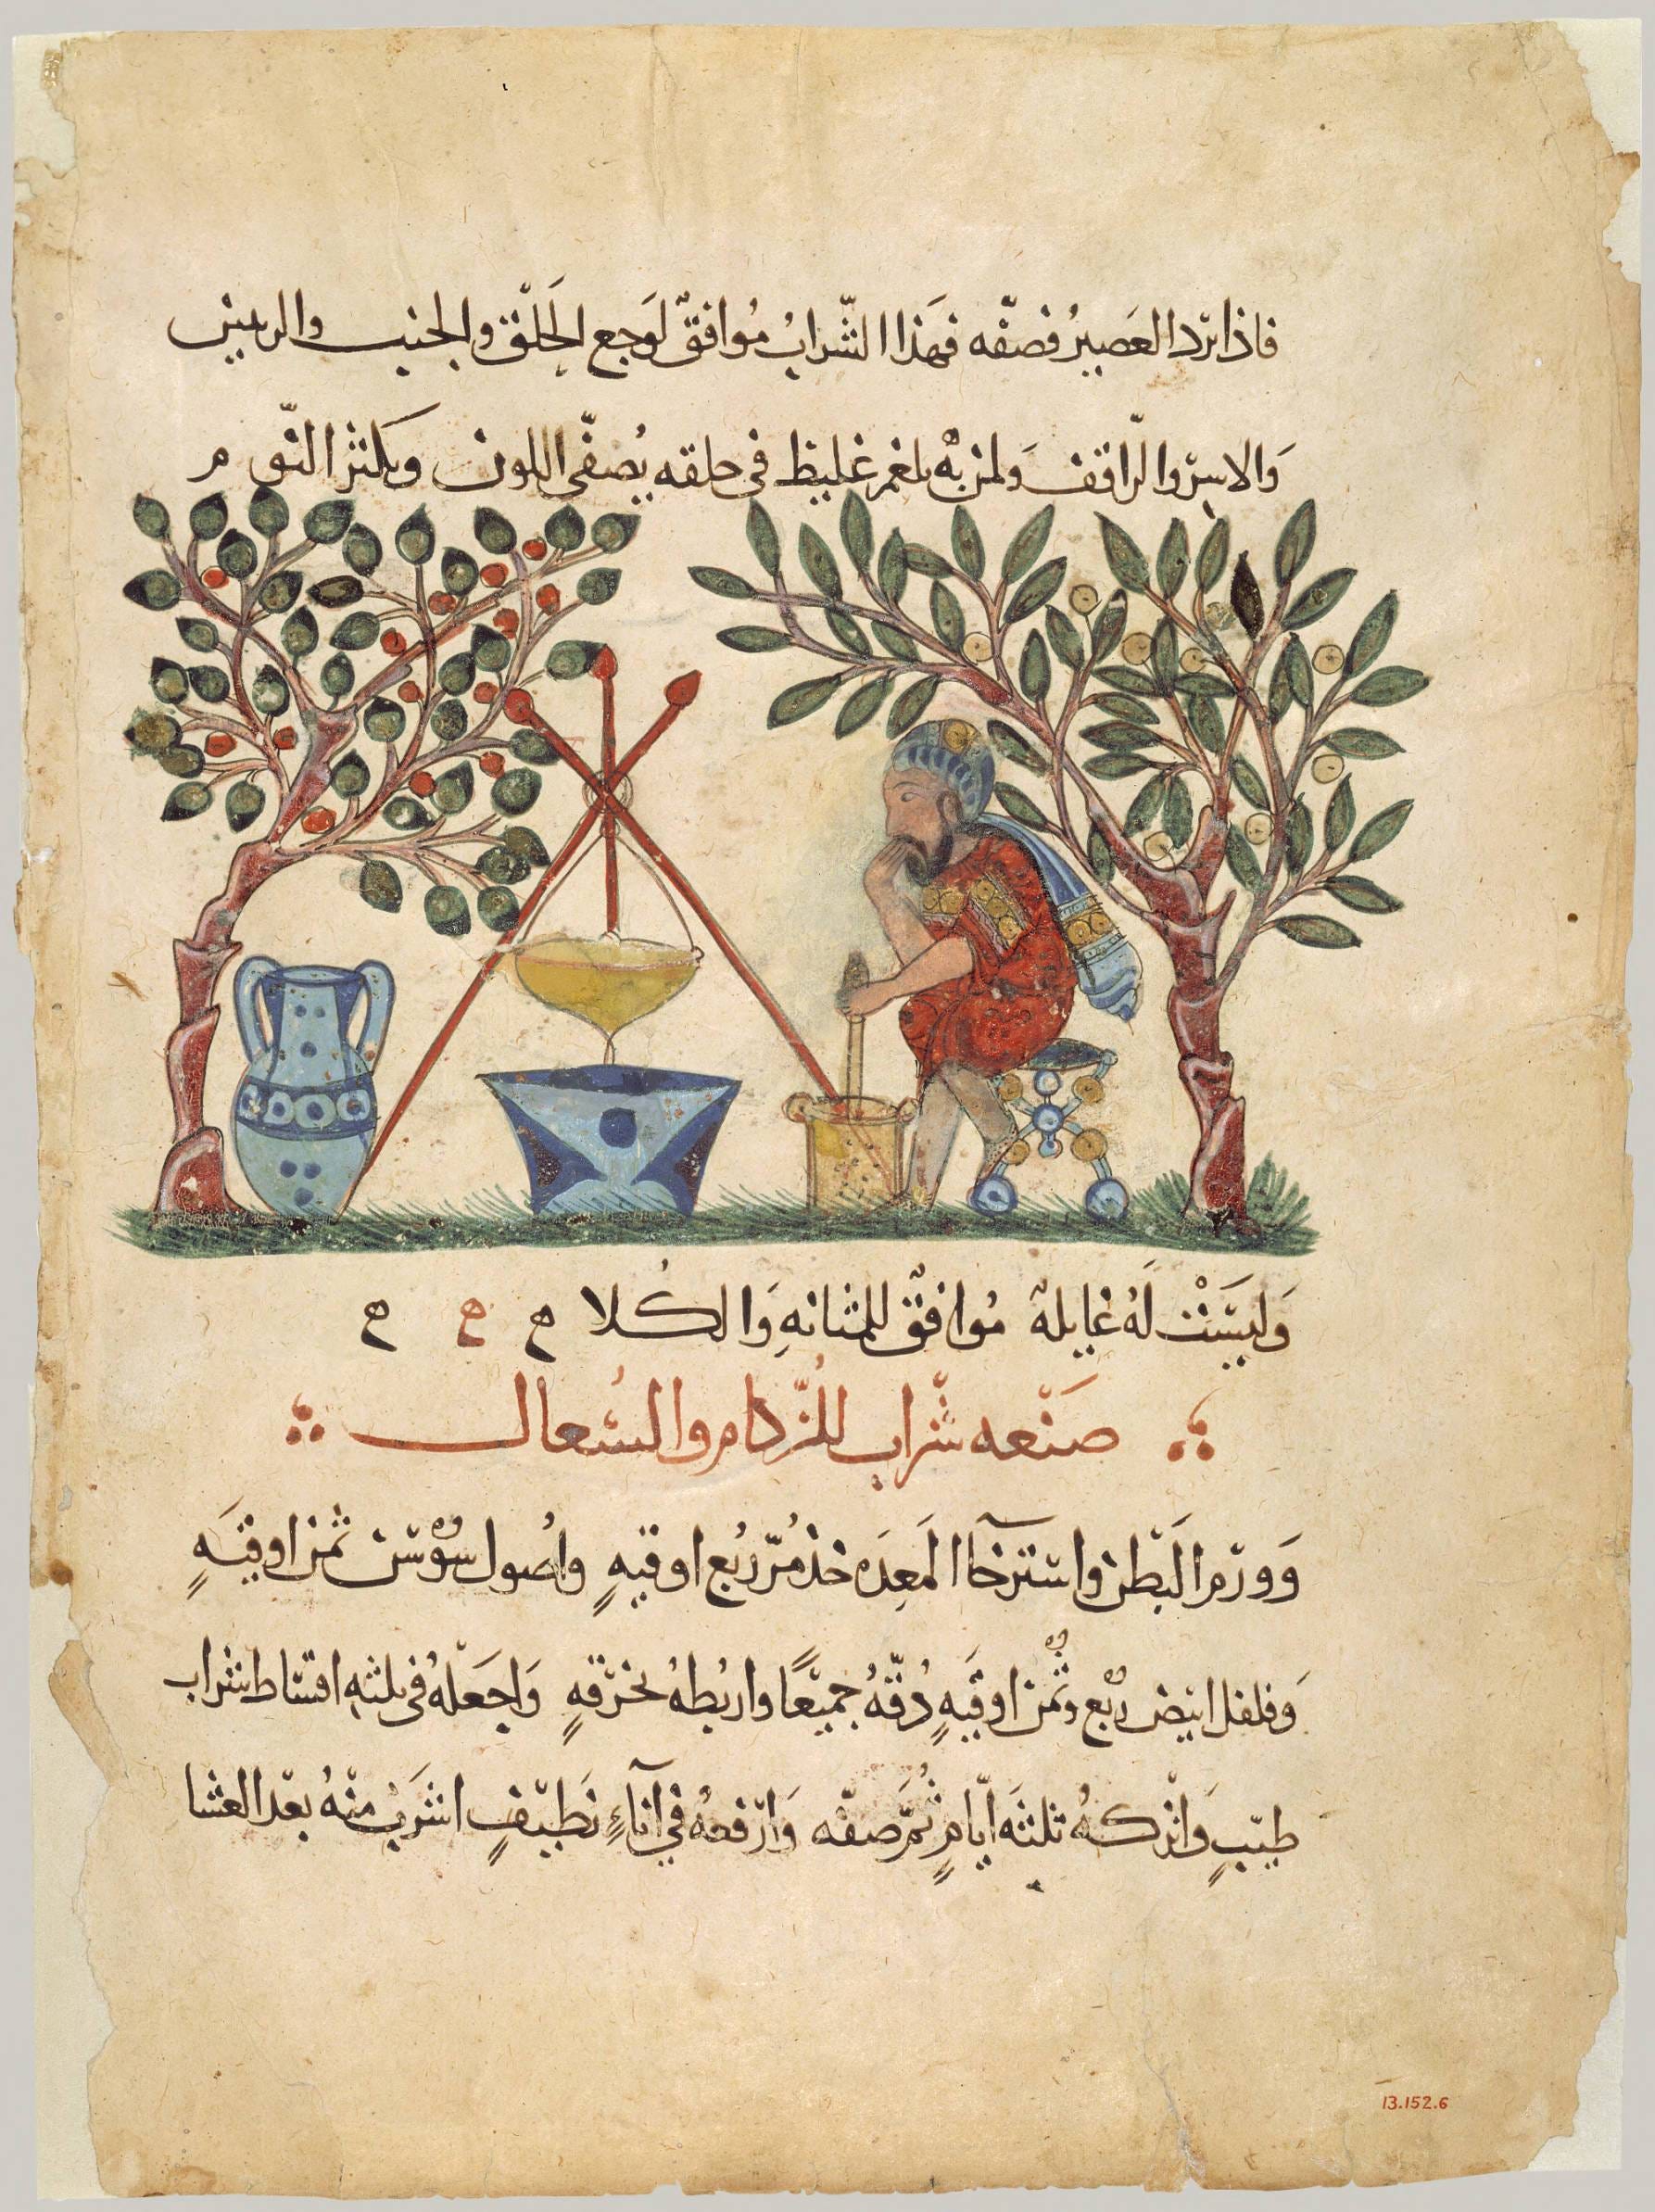 فاذا برد العَصيرُ فصفّه فهَذا الشّرابُ مُوافقٌ لوَجع الحَلْق والجنب والريتين
وَالاسر والرّاقف وَلمن بهْ بلغم غليظ في حلقه يُصفّي اللون ويكثر النّوم
وَليسَتْ لَهُ غايلة مُوافقٌ للمثانهِ وَالكُلا ح ح ح
صَنْعه شراب للزُّكام والسُعال
وَورْم البَطْن واسترخآ المَعِدَه خذ مُرّ رُبع اوقيهٍ واُصُول سوْسَن ثمن اوقيَهٍ
وَفلفل ابيض ربْع وثُمن اوقيَهٍ دُقّهُ جميْعًا واربُطهُ بخرْقهٍ وَاجعَلْهُ في ثلثهِ اقسَاط شراب
طيّبٍ وَاتْركهُ ثلثَه ايّامٍ ثُمَّ صفّه وَارْفعهُ في آناءٍ نَظيْفٍ اشرَبْ منْهُ بعْد العشا
13.152.6